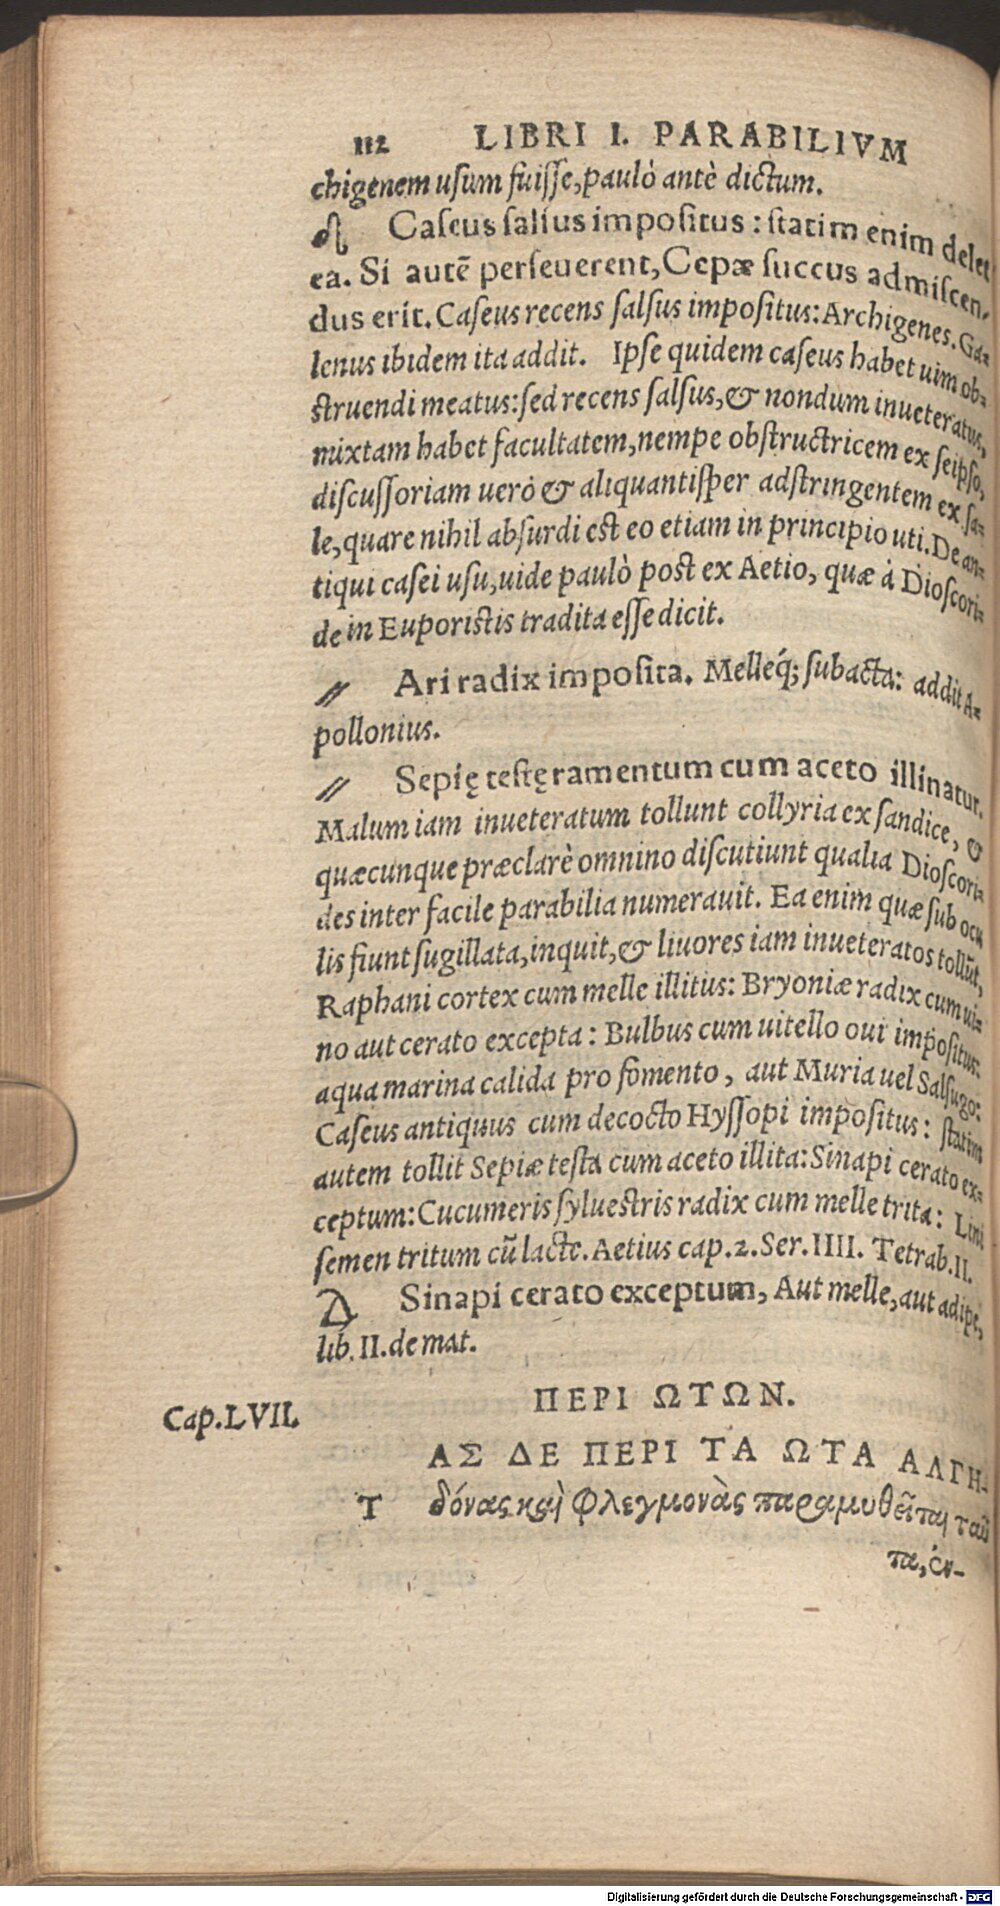 112 LIBRI I. PARABILIVM
chigenem usum fuisse, paulò antè dictum.
Caseus salsus impositus: statim enim delet
ea. Si autē perseuerent, Cepæ succus admiscen-
dus erit. Caseus recens salsus impositus: Archigenes. Ga-
lenus ibidem ita addit. Ipse quidem caseus habet uim ob-
struendi meatus: sed recens salsus, & nondum inueteratus,
mixtam habet facultatem, nempe obstructricem ex seipso,
discussoriam uerò & aliquantisper adstringentem ex sa-
le, quare nihil absurdi est eo etiam in principio uti. De an-
tiqui casei usu, uide paulò post ex Aetio, quæ à Dioscori-
de in Euporistis tradita esse dicit.
// Ari radix imposita. Melleq́; subacta: addit A-
pollonius.
// Sepię testę ramentum cum aceto illinatur.
Malum iam inueteratum tollunt collyria ex sandice, &
quæcunque præclarè omnino discutiunt qualia Dioscori-
des inter facile parabilia numerauit. Ea enim quæ sub ocu
lis fiunt sugillata, inquit, & liuores iam inueteratos tollūt,
Raphani cortex cum melle illitus: Bryoniæ radix cum ui-
no aut cerato excepta: Bulbus cum uitello oui impositus:
aqua marina calida pro fomento, aut Muria uel Salsugo:
Caseus antiquus cum decocto Hyssopi impositus: statim
autem tollit Sepiæ testa cum aceto illita: Sinapi cerato ex-
ceptum: Cucumeris syluestris radix cum melle trita: Lini
semen tritum cū lacte. Aetius cap. 2. Ser. IIII. Tetrab. II.
Sinapi cerato exceptum, Aut melle, aut adipe,
lib. II. de mat.
ΠΕΡΙ ΩΤΩΝ.
Cap. LVII.
ΑΣ ΔΕ ΠΕΡΙ ΤΑ ΩΤΑ ΑΛΓΗ-
Τ δόνας καὶ φλεγμονὰς παραμυθεῖται ταῦ
τα, ἐν-
Digitalisierung gefördert durch die Deutsche Forschungsgemeinschaft - DFG